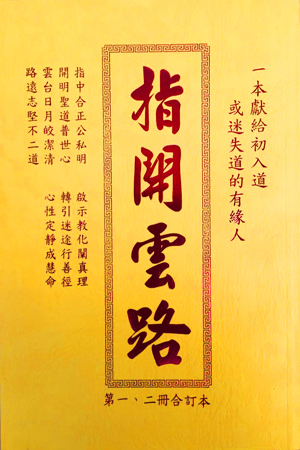 一本獻給初入道
或迷失道的有緣人
指開雲路
指中合正公私明
開明聖道普世心
雲台日月皎潔清
路遠志堅不二道
啟示教化闡真理
轉引迷途行善徑
心性定靜成慧命
第一、二冊合訂本